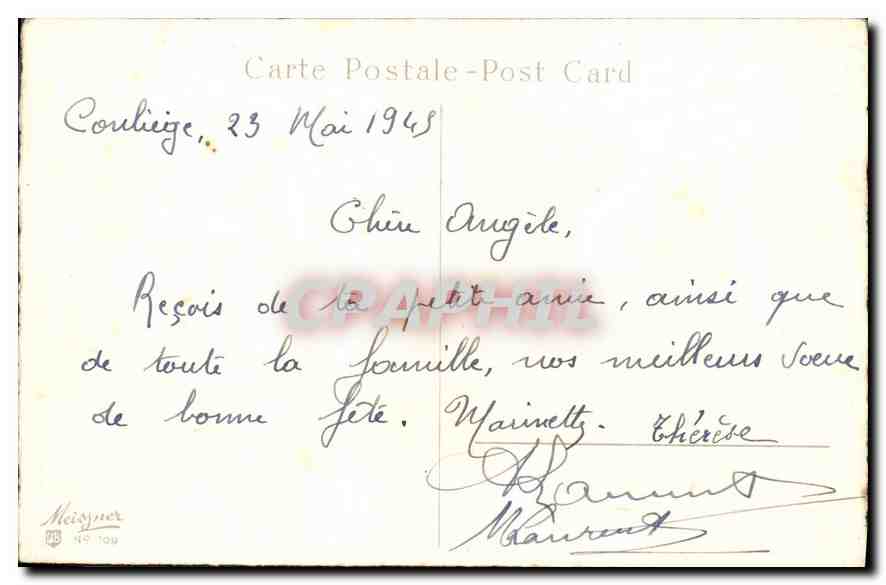 Carte Postale - Post Card
Conliège, 23 Mai 1945
Chère Angèle,
CPAPHIL
Reçois de ta petite amie, ainsi que
de toute la famille, nos meilleurs voeux
de bonne fête. Marinette. Thérèse
Laurent
MLaurent
Meissner